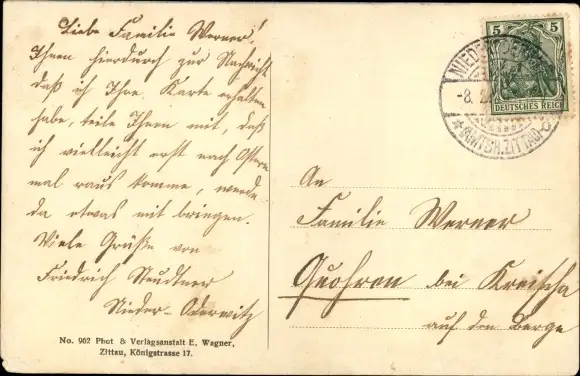 Liebe Familie Werner!
Ihnen hierdurch zur Nachricht
daß ich Ihre Karte erhalten
habe, teile Ihnen mit, daß
ich vielleicht erst nach Ostern
mal raus komme, werde
da etwas mit bringen.
Viele Grüße von
Friedrich Neudtner
Nieder-Oderwitz
No. 962 Phot & Verlagsanstalt E. Wagner,
Zittau, Königstrasse 17.
5 5
DEUTSCHES REICH
-8. 2.
An
Familie Werner
Quohren bei Kreischa
auf dem Berge